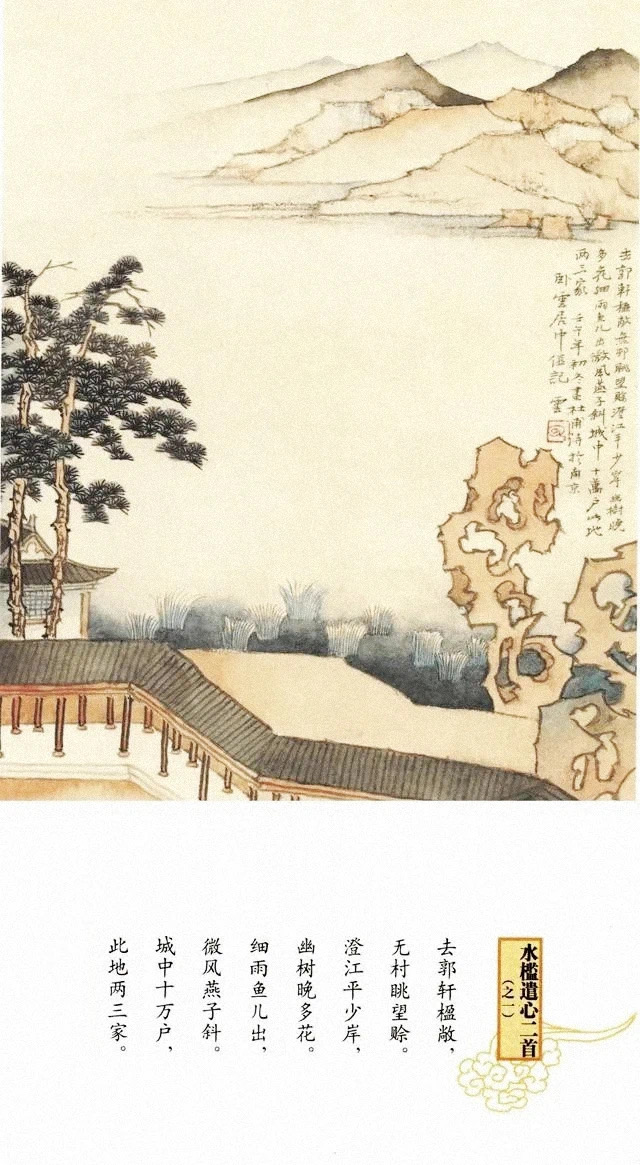 去郭軒楹敞無邨眺望賒澄江平少岸幽樹晚
多花細雨魚兒出微風燕子斜城中十萬戶此地
兩三家 壬午年初冬畫杜甫詩於南京
卧雲居中 記 雲
水槛遣心二首
（之一）
去郭轩楹敞，
无村眺望赊。
澄江平少岸，
幽树晚多花。
细雨鱼儿出，
微风燕子斜。
城中十万户，
此地两三家。